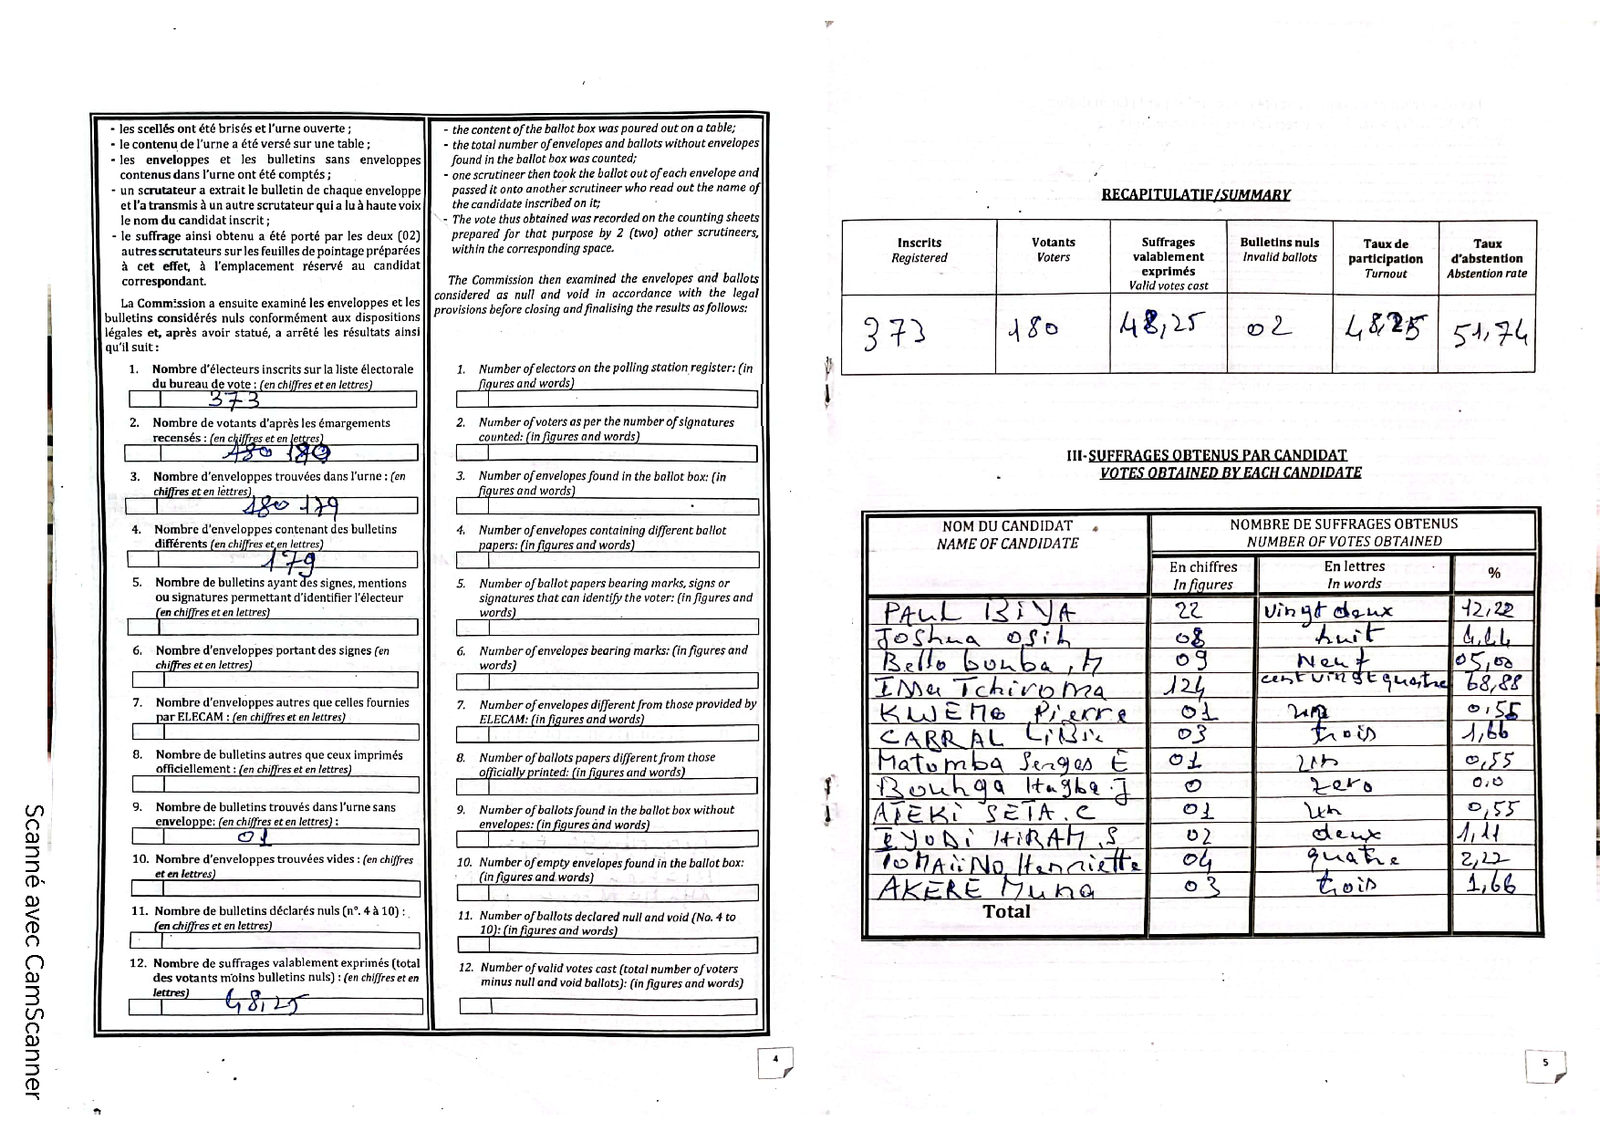 - les scellés ont été brisés et l'urne ouverte ;
- le contenu de l'urne a été versé sur une table ;
- les enveloppes et les bulletins sans enveloppes
contenus dans l'urne ont été comptés ;
- un scrutateur a extrait le bulletin de chaque enveloppe
et l'a transmis à un autre scrutateur qui a lu à haute voix
le nom du candidat inscrit ;
- le suffrage ainsi obtenu a été porté par les deux (02)
autres scrutateurs sur les feuilles de pointage préparées
à cet effet, à l'emplacement réservé au candidat
correspondant.
La Commission a ensuite examiné les enveloppes et les
bulletins considérés nuls conformément aux dispositions
légales et, après avoir statué, a arrêté les résultats ainsi
qu'il suit :
1. Nombre d'électeurs inscrits sur la liste électorale
du bureau de vote : (en chiffres et en lettres)
373
2. Nombre de votants d'après les émargements
recensés : (en chiffres et en lettres)
180 180
3. Nombre d'enveloppes trouvées dans l'urne : (en
chiffres et en lettres)
180 179
4. Nombre d'enveloppes contenant des bulletins
différents (en chiffres et en lettres)
179
5. Nombre de bulletins ayant des signes, mentions
ou signatures permettant d'identifier l'électeur
(en chiffres et en lettres)
6. Nombre d'enveloppes portant des signes (en
chiffres et en lettres)
7. Nombre d'enveloppes autres que celles fournies
par ELECAM : (en chiffres et en lettres)
8. Nombre de bulletins autres que ceux imprimés
officiellement : (en chiffres et en lettres)
9. Nombre de bulletins trouvés dans l'urne sans
enveloppe: (en chiffres et en lettres) :
01
10. Nombre d'enveloppes trouvées vides : (en chiffres
et en lettres)
11. Nombre de bulletins déclarés nuls (n°. 4 à 10) :
(en chiffres et en lettres)
12. Nombre de suffrages valablement exprimés (total
des votants moins bulletins nuls) : (en chiffres et en
lettres)
48,25
- the content of the ballot box was poured out on a table;
- the total number of envelopes and ballots without envelopes
found in the ballot box was counted;
- one scrutineer then took the ballot out of each envelope and
passed it onto another scrutineer who read out the name of
the candidate inscribed on it;
- The vote thus obtained was recorded on the counting sheets
prepared for that purpose by 2 (two) other scrutineers,
within the corresponding space.
The Commission then examined the envelopes and ballots
considered as null and void in accordance with the legal
provisions before closing and finalising the results as follows:
1. Number of electors on the polling station register: (in
figures and words)
2. Number of voters as per the number of signatures
counted: (in figures and words)
3. Number of envelopes found in the ballot box: (in
figures and words)
4. Number of envelopes containing different ballot
papers: (in figures and words)
5. Number of ballot papers bearing marks, signs or
signatures that can identify the voter: (in figures and
words)
6. Number of envelopes bearing marks: (in figures and
words)
7. Number of envelopes different from those provided by
ELECAM: (in figures and words)
8. Number of ballots papers different from those
officially printed: (in figures and words)
9. Number of ballots found in the ballot box without
envelopes: (in figures and words)
10. Number of empty envelopes found in the ballot box:
(in figures and words)
11. Number of ballots declared null and void (No. 4 to
10): (in figures and words)
12. Number of valid votes cast (total number of voters
minus null and void ballots): (in figures and words)
4
Scanné avec CamScanner
RECAPITULATIF/SUMMARY
Inscrits Registered Votants Voters Suffrages valablement exprimés Valid votes cast Bulletins nuls Invalid ballots Taux de participation Turnout Taux d'abstention Abstention rate
373 180 48,25 02 48,25 51,74
III-SUFFRAGES OBTENUS PAR CANDIDAT
VOTES OBTAINED BY EACH CANDIDATE
NOM DU CANDIDAT NOMBRE DE SUFFRAGES OBTENUS
NAME OF CANDIDATE NUMBER OF VOTES OBTAINED
En chiffres En lettres %
In figures In words
PAUL BIYA 22 vingt deux 12,22
Joshua Osih 08 huit 4,44
Bello bouba, M 09 Neuf 05,00
ISSa Tchiroma 124 cent vingt quatre 68,88
KWEMO Pierre 01 un 0,55
CABRAL LiBii 03 trois 1,66
Matomba Serges E 01 un 0,55
Bouhga Hagbe.J 0 zero 0,0
ATEKI SETA.C 01 un 0,55
IYODI HIRAM.S 02 deux 1,11
TOMAïNO Henriette 04 quatre 2,22
AKERE Muna 03 trois 1,66
Total
5